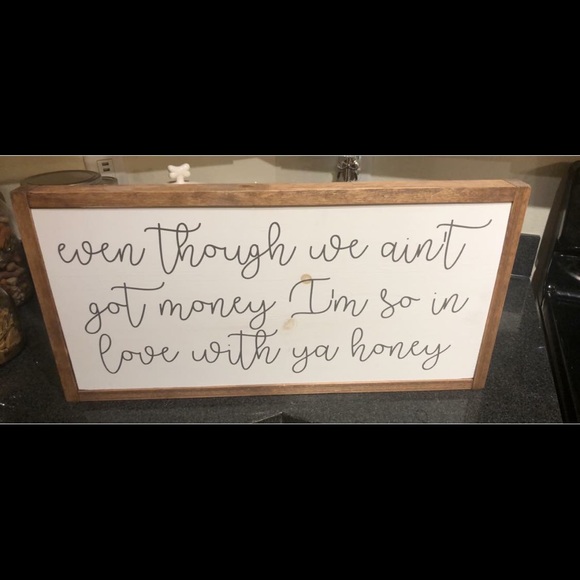 even though we ain't
got money I'm so in
love with ya honey